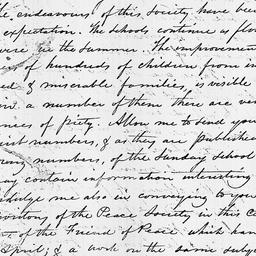 endeavours of this Society have been
expectation. The schools continue as flo
were in the Summer. The improvement
of hundreds of children from in
& miserable families, is visible
a number of them there are ver
nces of piety. Allow me to send you
numbers, & as they are publishe
numbers, of the Sunday School
ay contain information interesting
ndulge me also in conveying to you
of the Peace Society in this C
of the Friend of Peace which have
April; & a work on the same subje